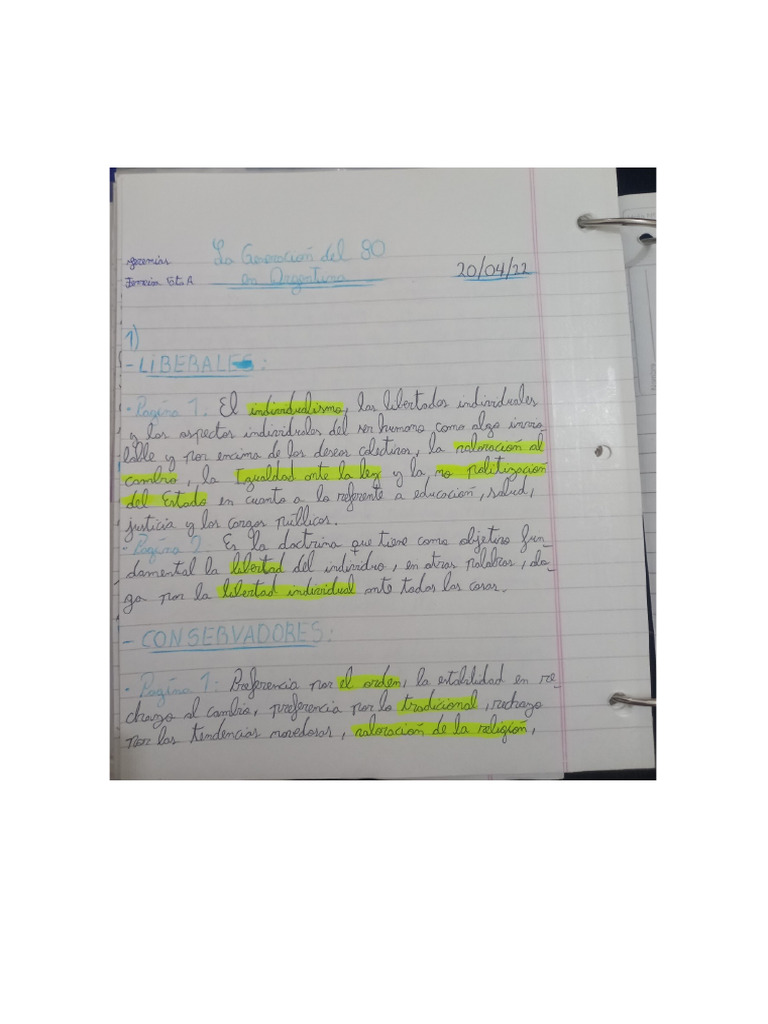 Jeremías La Generación del 80 20/04/22
Ferreira 5to A en Argentina
1)
- LIBERALES:
• Página 1: El individualismo, las libertades individuales
y los aspectos individuales del ser humano como algo invio-
lable y por encima de los deseos colectivos, la valoración al
cambio, la Igualdad ante la ley y la no politización
del Estado en cuanto a lo referente a educación, salud,
justicia y los cargos públicos.
• Página 2: Es la doctrina que tiene como objetivo fun-
damental la libertad del individuo, en otras palabras, abo-
ga por la libertad individual ante todas las cosas.
- CONSERVADORES:
• Página 1: Preferencia por el orden, la estabilidad en re-
chazo al cambio, preferencia por lo tradicional, rechazo
por las tendencias novedosas, valoración de la religión,